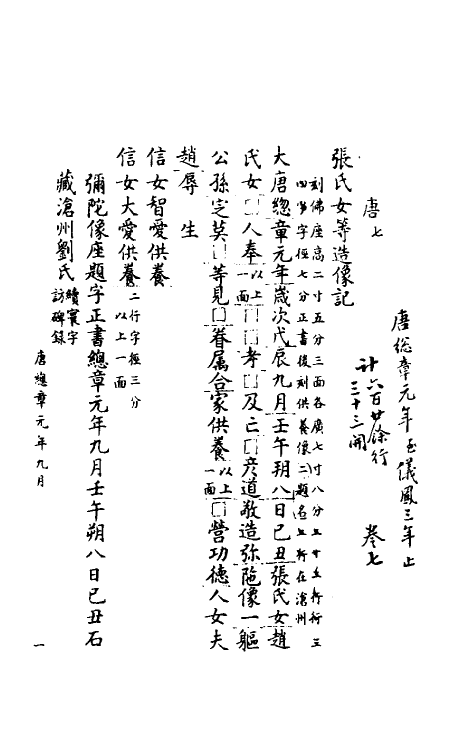 唐總章元年至儀鳳三年止
計六百廿餘行
三十三開
卷七
唐七
張氏女等造像記
刻佛座高二寸五分三面各廣七寸八分五十五行行三
四字字徑七分正書後刻供養像二題名五行在滄州
大唐總章元年歲次戊辰九月壬午朔八日己丑張氏女趙
氏女□人奉以上一面□□考□及亡□彥道敬造弥陁像一軀
公孫定莫□等見□眷属合家供養以上一面□營功德人女夫
趙辱生
信女智愛供養
信女大愛供養二行字徑三分以上一面
彌陀像座題字正書總章元年九月壬午朔八日己丑石
藏滄州劉氏續寰宇訪碑錄
唐總章元年九月
一